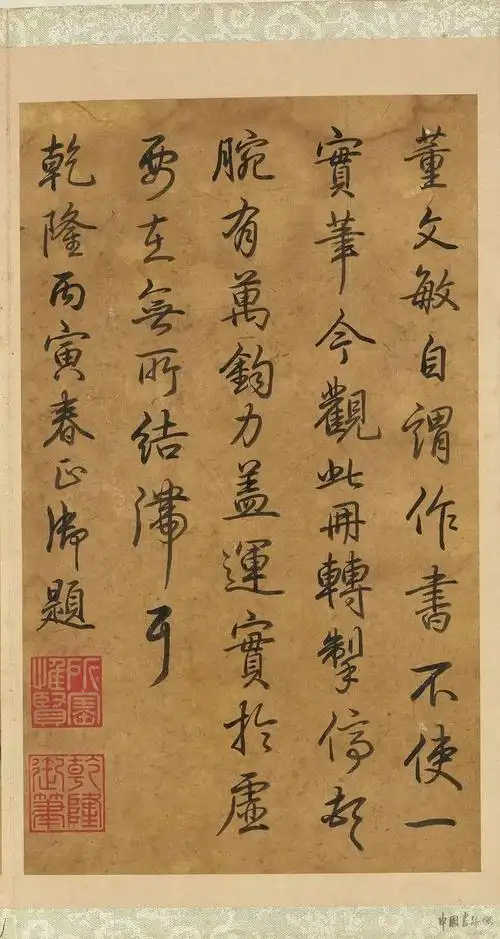 董文敏自謂作書不使一
實筆今觀此冊轉掣停頓
腕有萬鈞力蓋運實於虛
要在無所結滯耳
乾隆丙寅春正御題
所寶惟賢
乾隆御筆